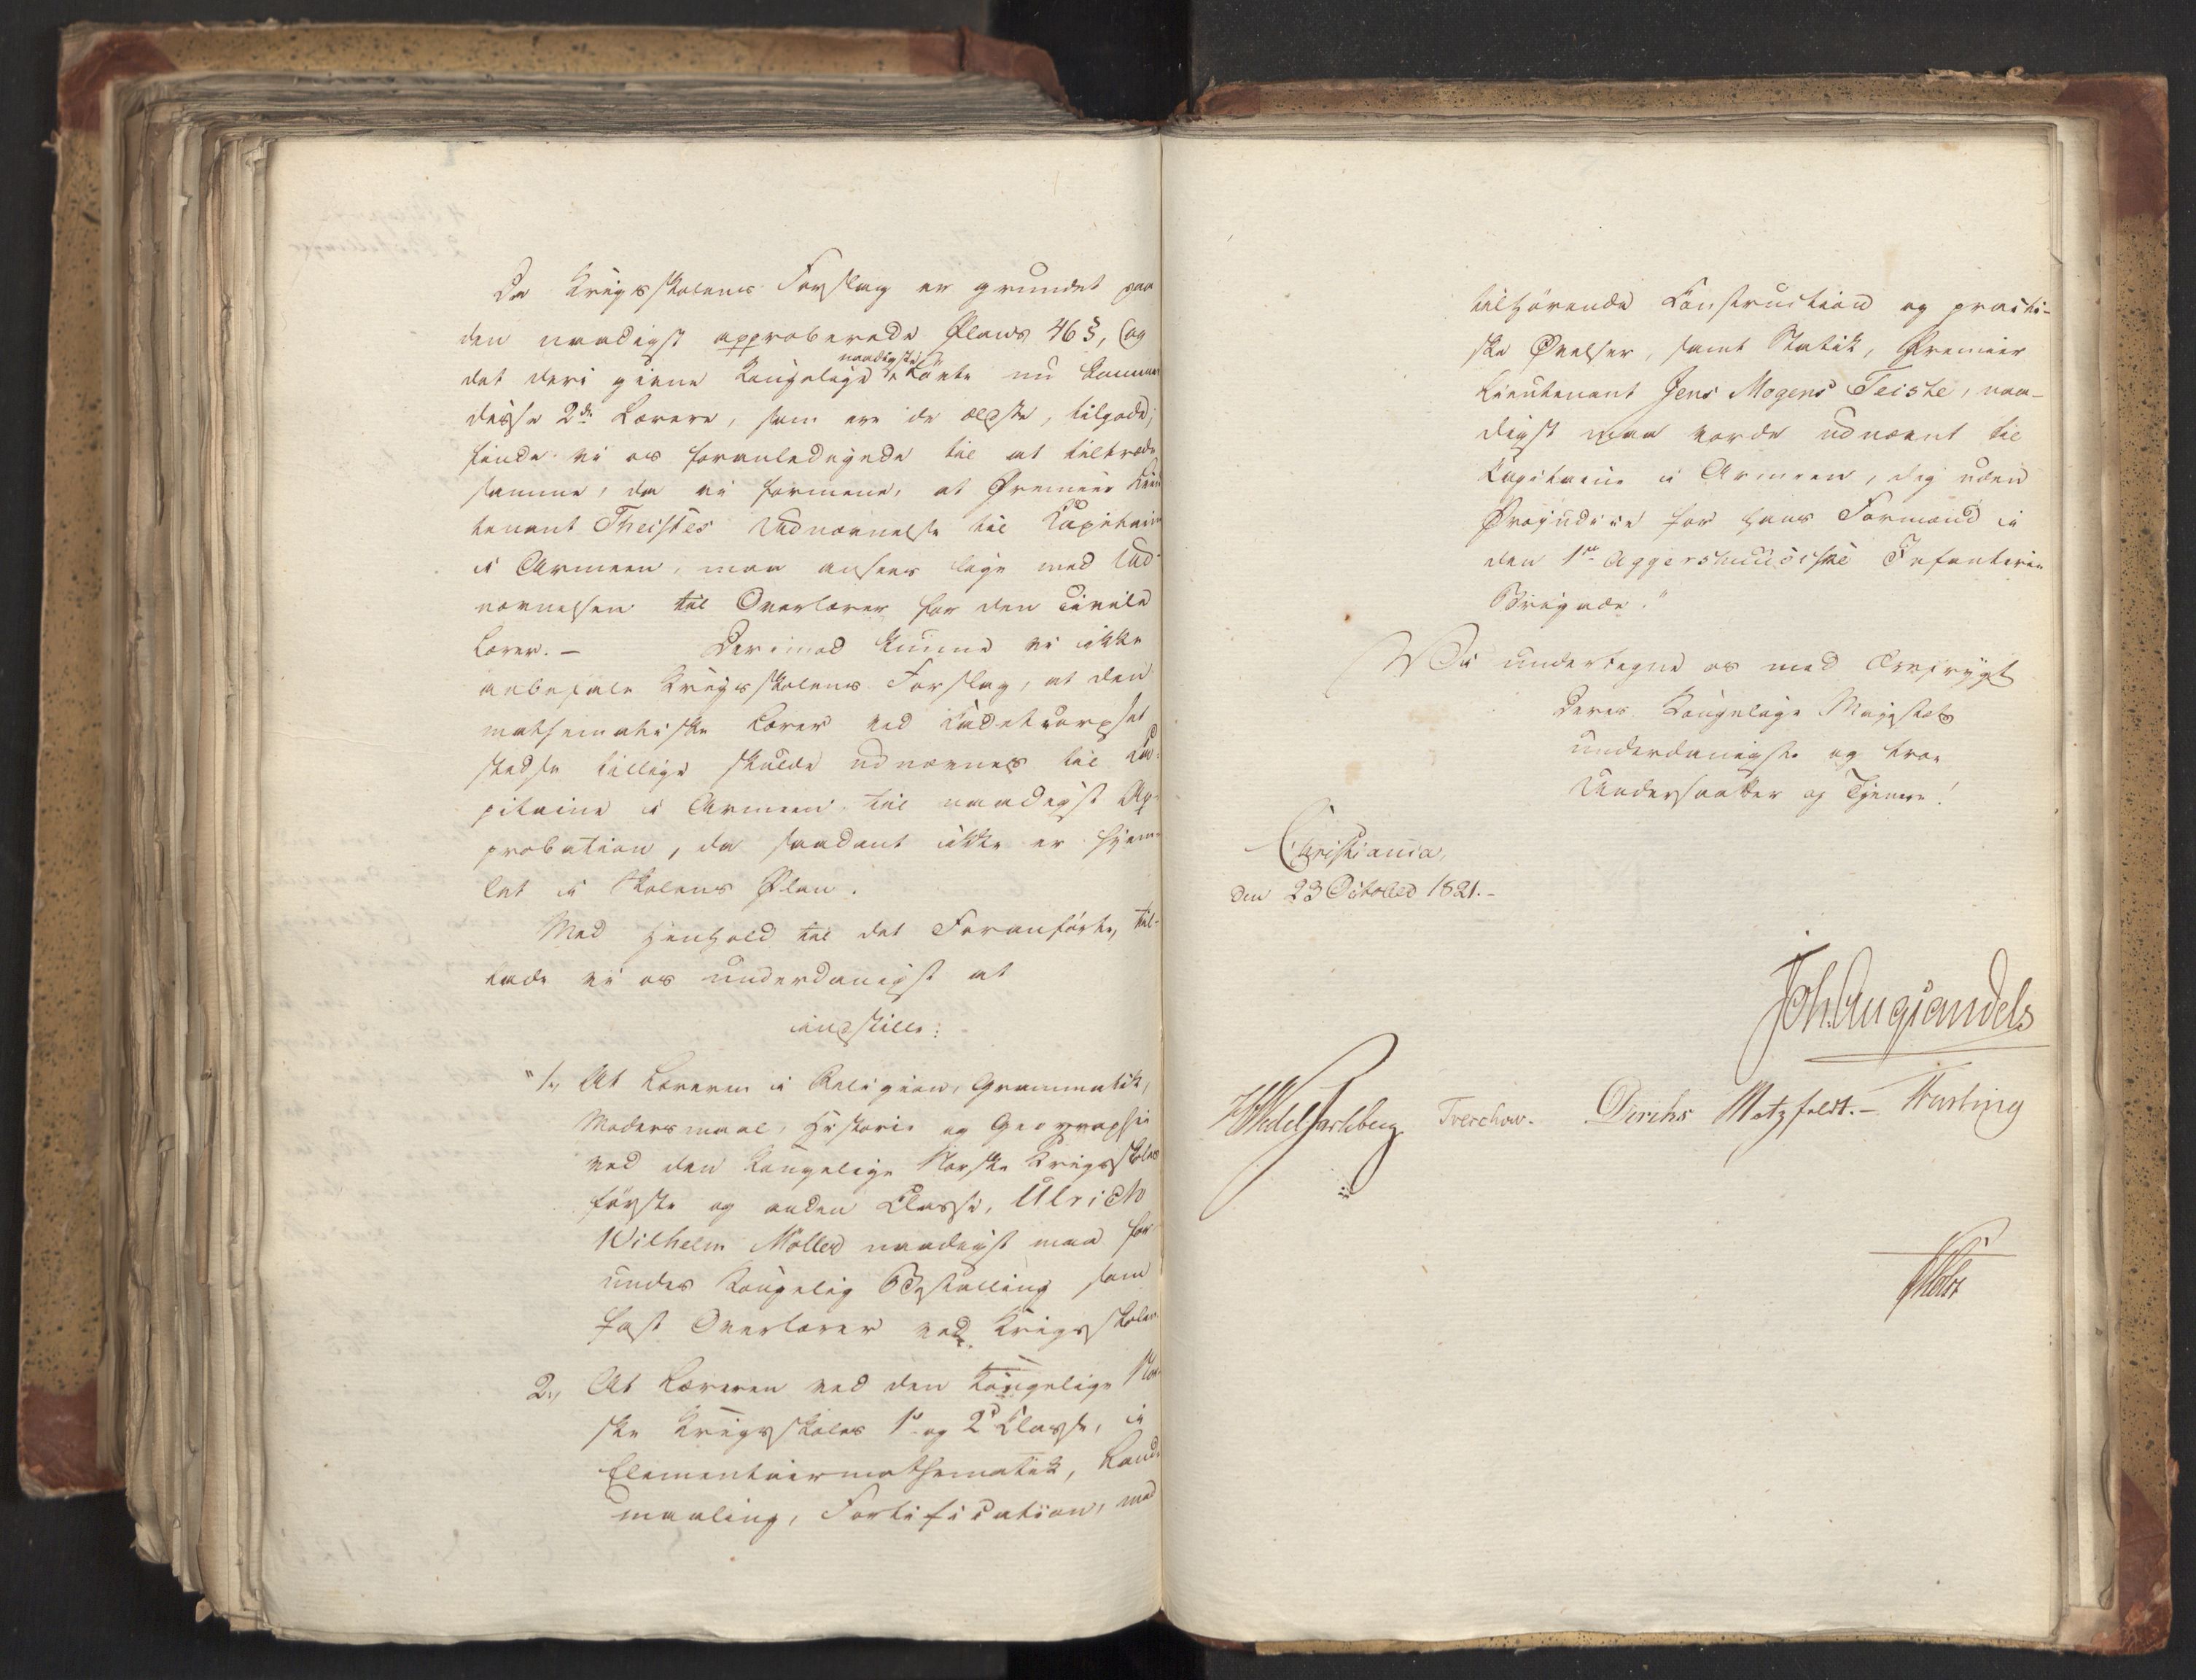 Da Krigsskolens Forslag er grundet paa
den naadigst approberede Plans 46 §, og
det deri givne Kongelige naadigste Löfte nu kommer
disse 2de Lærere, som ere de ældste, tilgode;
finde vi os foranledigede til at tiltræde
samme, da vi formene, at Premier Lieu-
tenant Theistes Udnævnelse til Capitain
i Armeen, maa ansees lige med Ud-
nævnelsen til Overlærer for den civile
Lærer. — Derimod kunne vi ikke
anbefale Krigsskolens Forslag, at den
mathematiske Lærer ved Cadetcorpset
stedse tillige skulde udnævnes til Ca-
pitaine i Armeen til naadigst Ap-
probation, da saadant ikke er hjem-
let i Skolens Plan.
Med Henhold til det Foranförte, til-
lade vi os underdanigst at
indstille:
"1., At Læreren i Religion, Grammatik,
Modersmaal, Historie og Geographie
ved den Kongelige Norske Krigsskoles
förste og anden Classe, Ulrich
Wilhelm Möller naadigst maa for-
undes Kongelig Bestalling som
fast Overlærer ved Krigsskolen.
2., At Læreren ved den Kongelige Nor-
ske Krigsskoles 1e og 2d Classe, i
Elementairmathematik, Land-
maaling, Fortification, med
tilhörende Construction og practi-
ske Øvelser, samt Statik, Premier
Lieutenant Jens Mogens Teiste, naa-
digst maa vorde udnævnt til
Kapitaine i Armeen, dog uden
Præjudice for hans Formænd i
den 1ste Aggershuusiske Infanterie
Brigade."
Vi undertegne os med Ærefrygt
Deres Kongelige Majestets
underdanigste og troe
Undersaatter og Tjenere!
Christiania,
den 23 October 1821.-
Joh. Aug Sandels
HWedel Jarlsberg Treschow. Diriks Motzfeldt. - Fasting
Holst